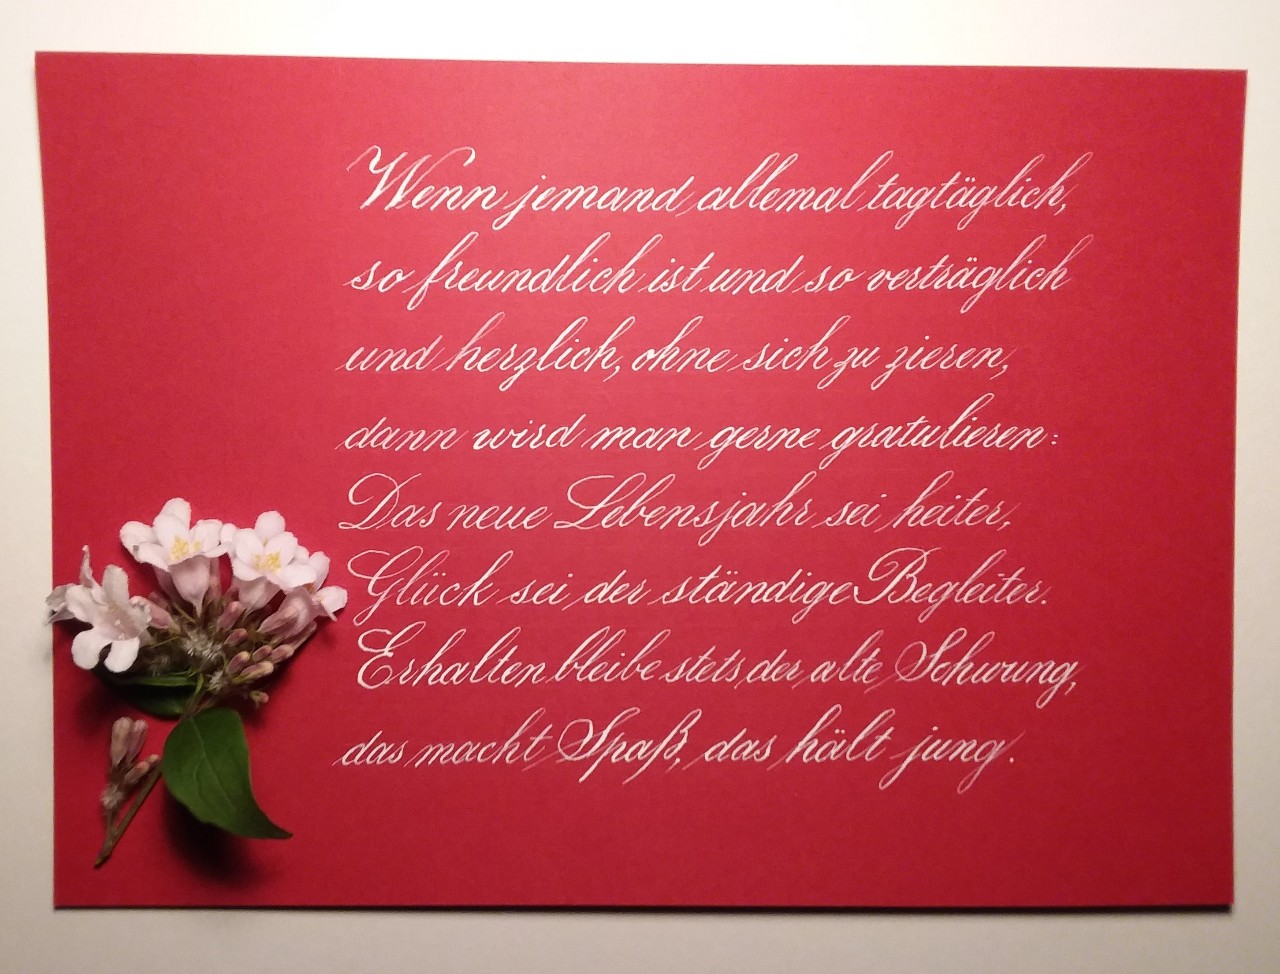 Wenn jemand allemal tagtäglich,
so freundlich ist und so verträglich
und herzlich, ohne sich zu zieren,
dann wird man gerne gratulieren:
Das neue Lebensjahr sei heiter,
Glück sei der ständige Begleiter.
Erhalten bleibe stets der alte Schwung,
das macht Spaß, das hält jung.